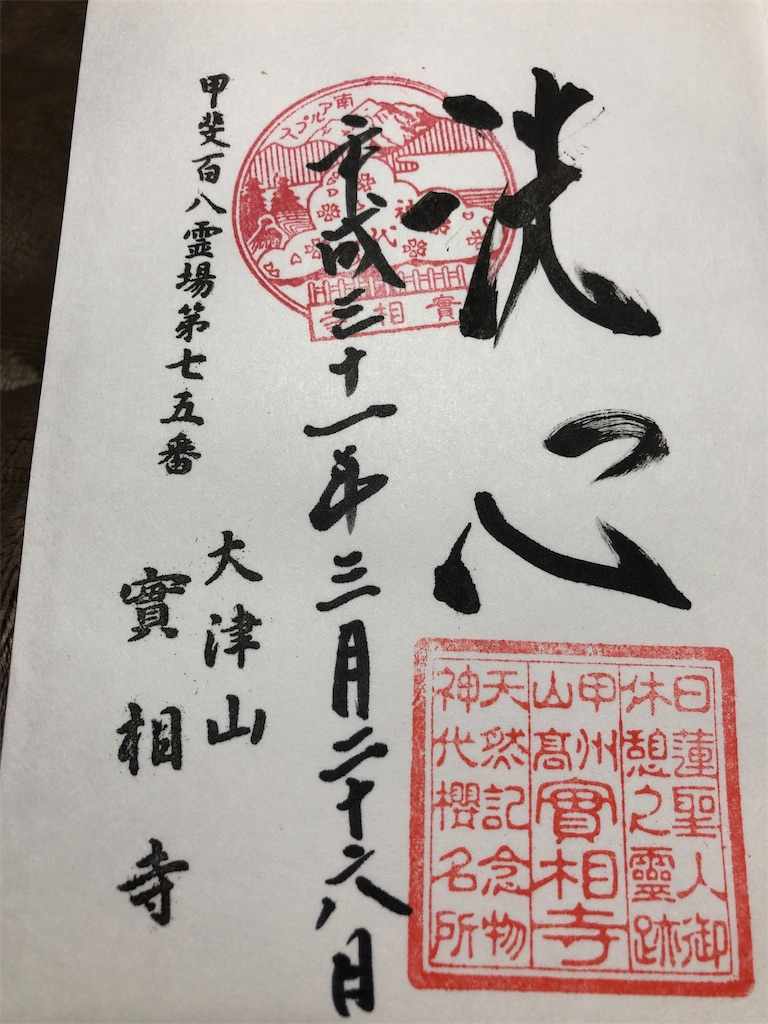 洗心
平成三十一年三月二十六日
甲斐百八霊場第七五番
大津山
實相寺
南アルプス
神代
實相寺
日蓮聖人御
休憩之靈跡
甲州
山髙
實相寺
天然記念物
神代櫻名所